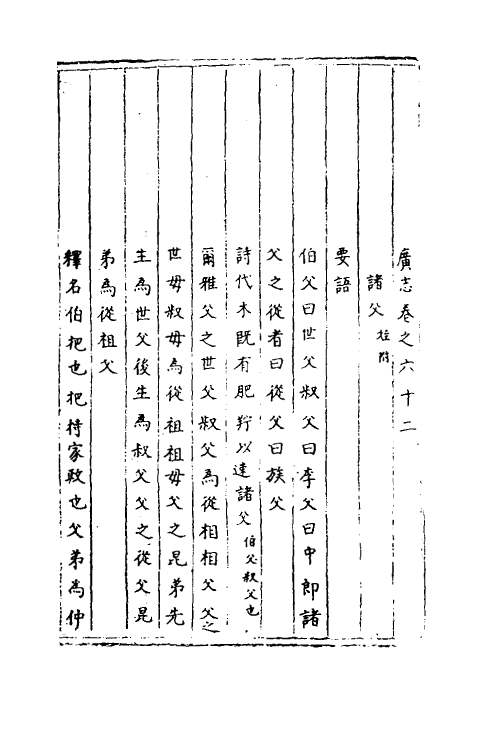 廣志卷之六十二
諸父 姪附
要語
伯父曰世父叔父曰季父曰中郎諸
父之從者曰從父曰族父
詩代木既有肥羜以速諸父 伯父叔父也
爾雅父之世父叔父為從相相父父之
世母叔母為從祖祖母父之昆弟先
生為世父後生為叔父父之從父昆
弟為從祖父
釋名伯把也把持家政也父弟為仲